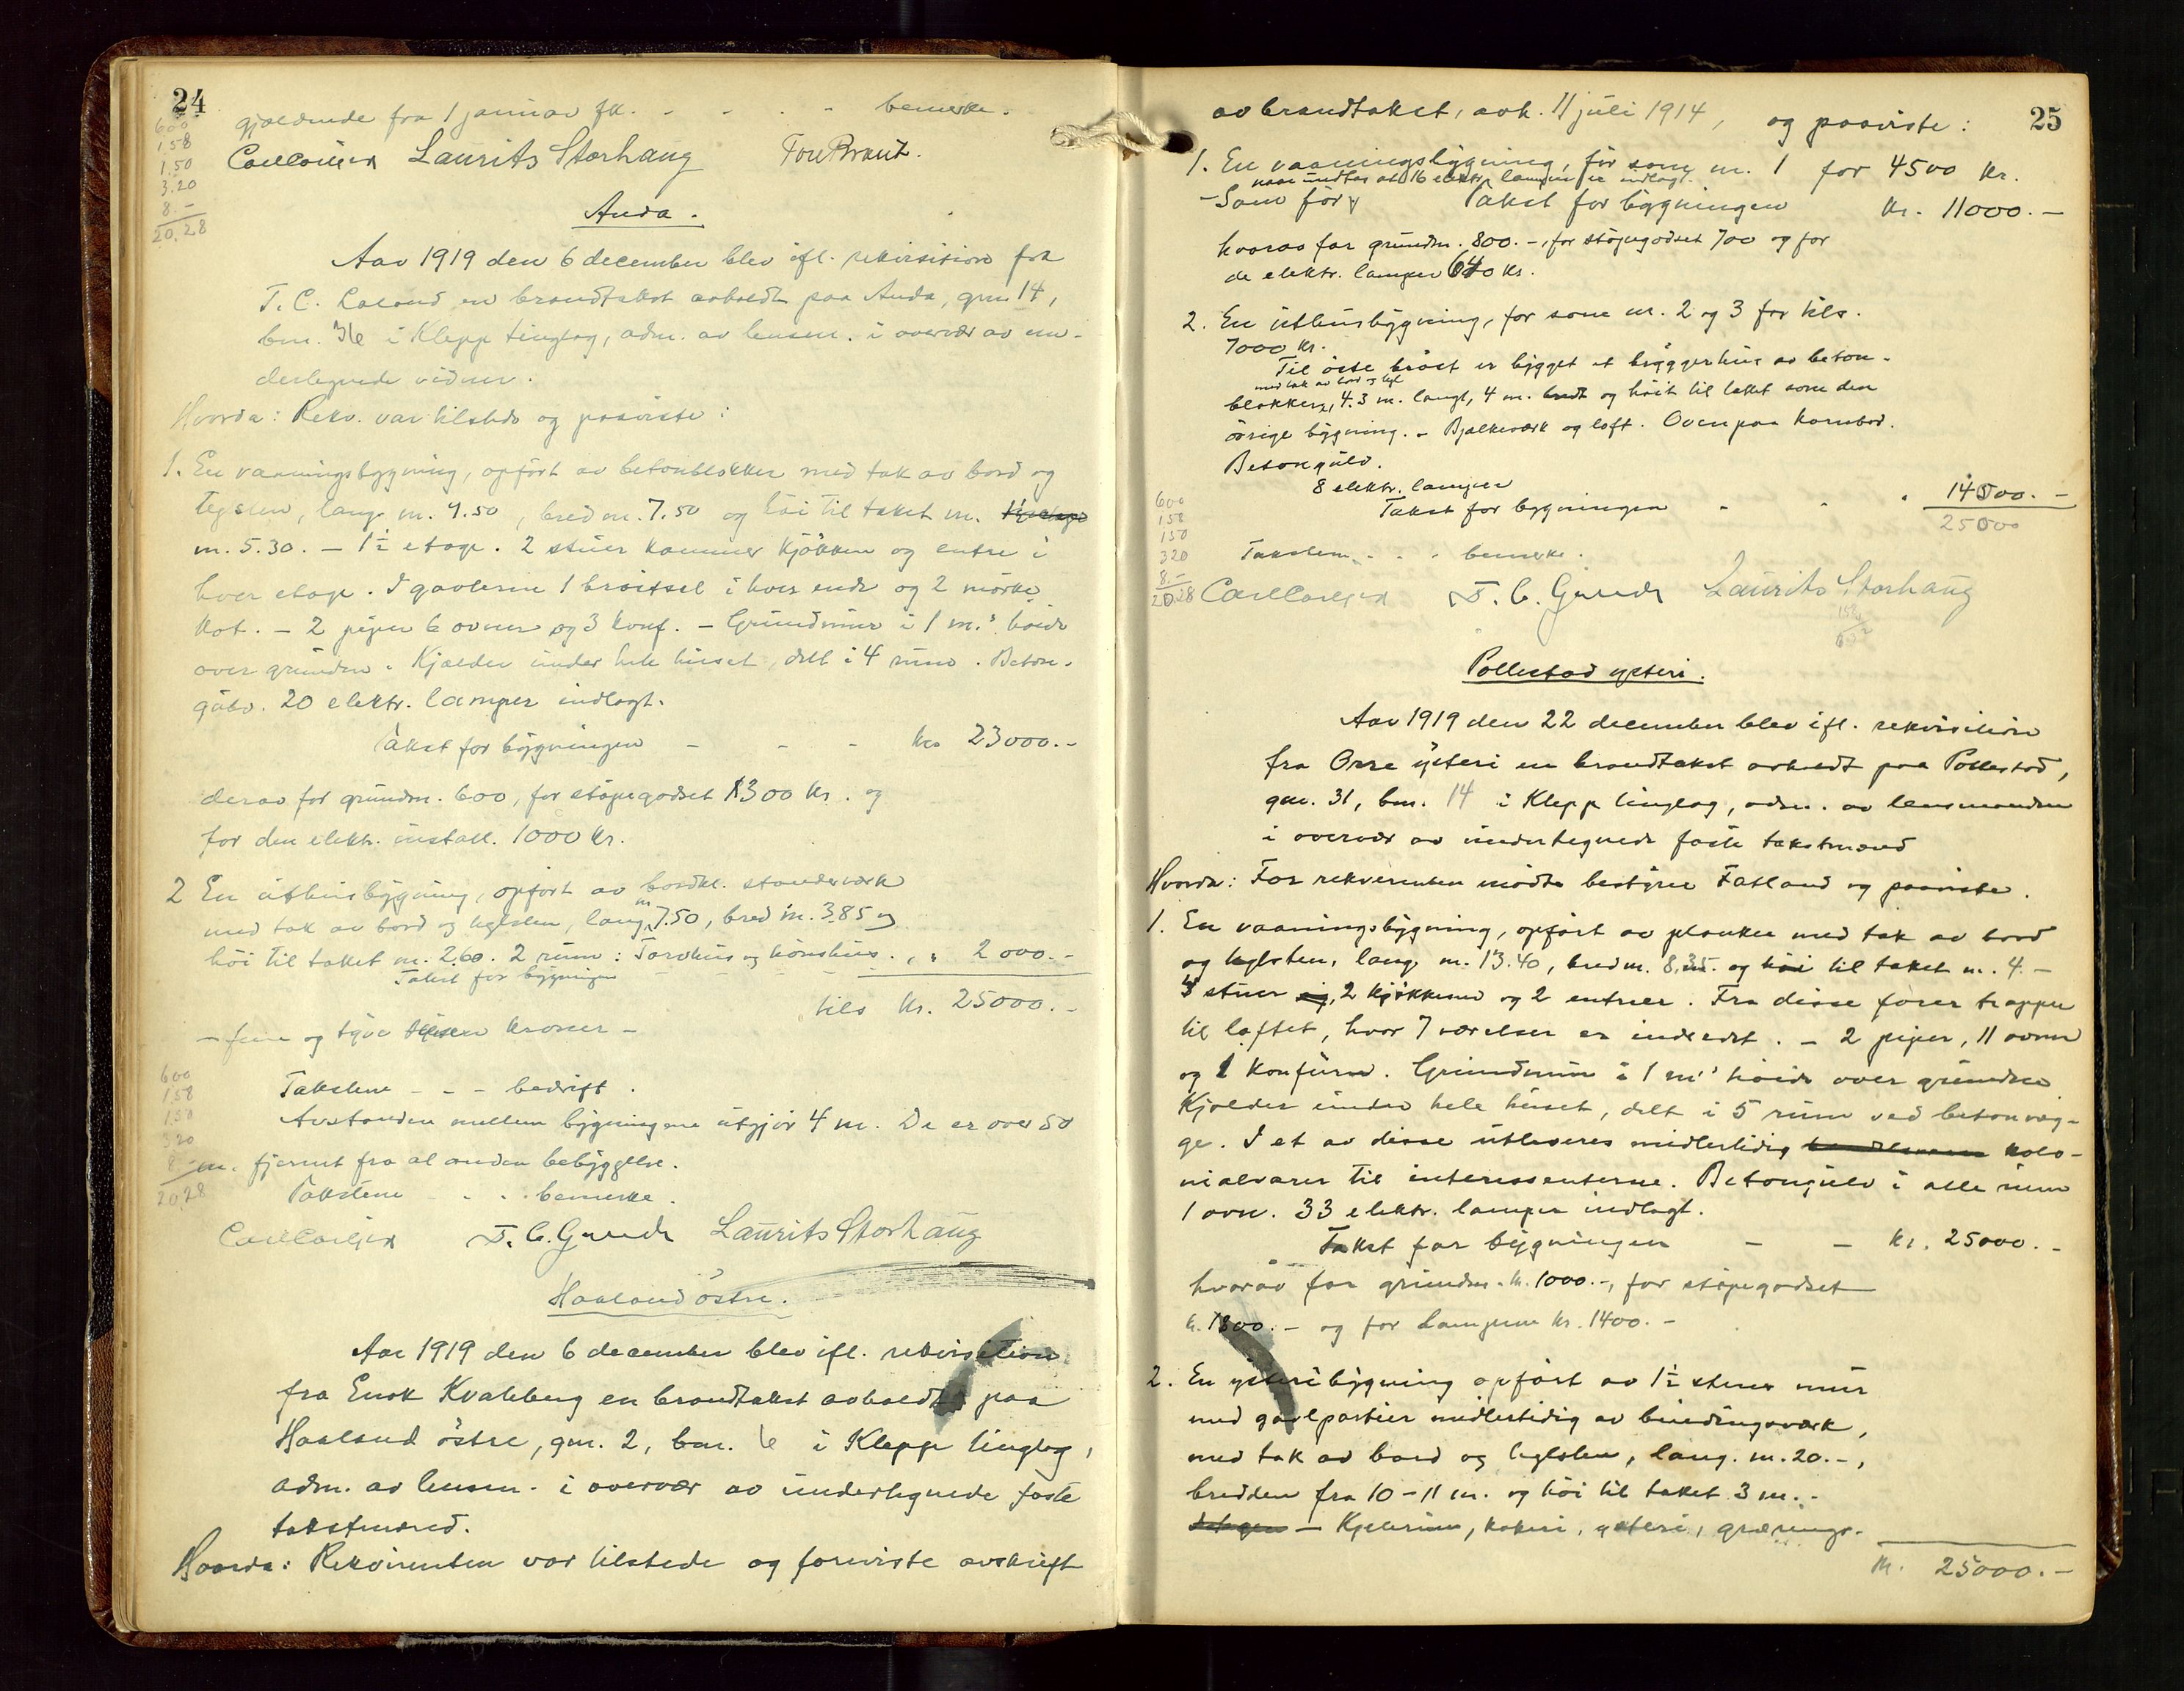 24
gjældende fra 1 januar fk. - - - - bemerke.
600
1.58
1.50
3.20
8.-
20.28
Carl Carlsen Laurits Storhaug
Anda.
Aar 1919 den 6 december blev ifl. rekvisition fra
T. C. en brandtakst avholdt paa Anda, gnr. 14,
bnr. 36 i Klepp tinglag, adm. av lensm. i overvær av un-
dertegnede vidner.
Hvorda: Rekv. var tilstede og paaviste:
1. En vaaningsbygning, opført av betonblokker med tak av bord og
teglsten, lang m. 9.50, bred m. 7.50 og høi til taket m.
m. 5.30. - 1½ etage. 2 stuer kammer kjøkken og entre i
hver etage. I gavlerne 1 i hver ende og 2 mørke
kot. - 2 piper 6 ovner og 3 konf. - Grundmur i 1 m.s høide
over grunden. Kjælder under hele huset, delt i 4 rum. Beton-
gulv. 20 elektr. lamper indlagt.
Takst for bygningen - - - kr. 23000.-
derav for grundm. 600, for støpegodset 1300 kr. og
for den elektr. install. 1000 kr.
2 En uthusbygning, opført av bordkl. stenderværk
med tak av bord og teglsten, lang m. 7.50, bred m. 3.85 og
høi til taket m. 2.60. 2 rum: Torvhus og hönshus. „ „ 2000.-
Takst for bygningen
tils kr. 25000.-
- fem og tyve tusen kroner -
600
158
150
320
8.-
20.28
Takstene - - - bedrift.
Avstanden mellem bygningene utgjör 4 m. De er over 50
m. fjernet fra al anden bebyggelse.
Takstene - - - bemerke.
Carl Carlsen T. C. Laurits Storhaug
Haaland östre.
Aar 1919 den 6 december blev ifl. rekvisition
fra Enok Kvaleberg en brandtakst avholdt paa
Haaland östre, gnr. 2, bnr. 6 i Klepp tinglag,
adm. av lensm. i overvær av undertegnede faste
takstmænd.
Hvorda: Rekvirenten var tilstede og foreviste avskrift
25
av brandtakst, avh. 11 juli 1914, og paaviste:
1. En vaaningsbygning, før som nr. 1 for 4500 kr.
naar undtas at 16 elektr. lamper er indlagt.
- Som før Takst for bygningen kr. 11000.-
hvorav for grundm. 800.-, for støpegodset 700 og for
de elektr. lamper 640 kr.
2. En uthusbygning, før som nr. 2 og 3 for tils.
7000 kr.
Til øste brøst er bygget et bryggerhus av beton-
med tak av bord og tegl
blokker, 4.3 m. langt, 4 m. bredt og høit til taket som den
øvrige bygning. - Bjelkeværk og loft. Ovenpaa kornbod.
Betongulv.
8 elektr. lamper
Takst for bygningen - - - 14000.-
25000
600
158
150
320
8.-
20.28
Takstene - - - bemerke.
Carl Carlsen T. C. Laurits Storhaug
Pollestad ysteri.
Aar 1919 den 22 december blev ifl. rekvisition
fra Orre ysteri en brandtakst avholdt paa Pollestad,
gnr. 31, bnr. 14 i Klepp tinglag, adm. av lensmanden
i overvær av undertegnede faste takstmænd
Hvorda: For rekvirenten mødte bestyrer Fatland og paaviste.
1. En vaaningsbygning, opført av planker med tak av bord
og teglsten, lang m. 13.40, bred m. 8.35. og høi til taket m. 4.-
3 stuer og, 2 kjøkkener og 2 entreer. Fra disse fører trapper
til loftet, hvor 7 værelser er indredet. - 2 piper, 11 ovner
og 1 konfurer. Grundmur i 1 m.s høide over grunden
Kjælder under hele huset, delt i 5 rum ved betonvæg-
ge. I et av disse utleveres midlertidig kolo-
nialvarer til interessenterne. Betongulv i alle rum
1 ovn. 33 elektr. lamper indlagt.
Takst for bygningen - - kr. 25000.-
hvorav for grundm. kr. 1000.-, for støpegodset
kr. 1800.- og for lamperne kr. 1400.-
2. En ysteribygning opført av 1½ stens mur
med gavlpartier midlertidig av bindingsværk,
med tak av bord og teglsten, lang m. 20.-,
bredden fra 10-11 m. og høi til taket 3 m.-
- Kjelerum, kokeri, ysteri, grærings-
kr. 25000.-